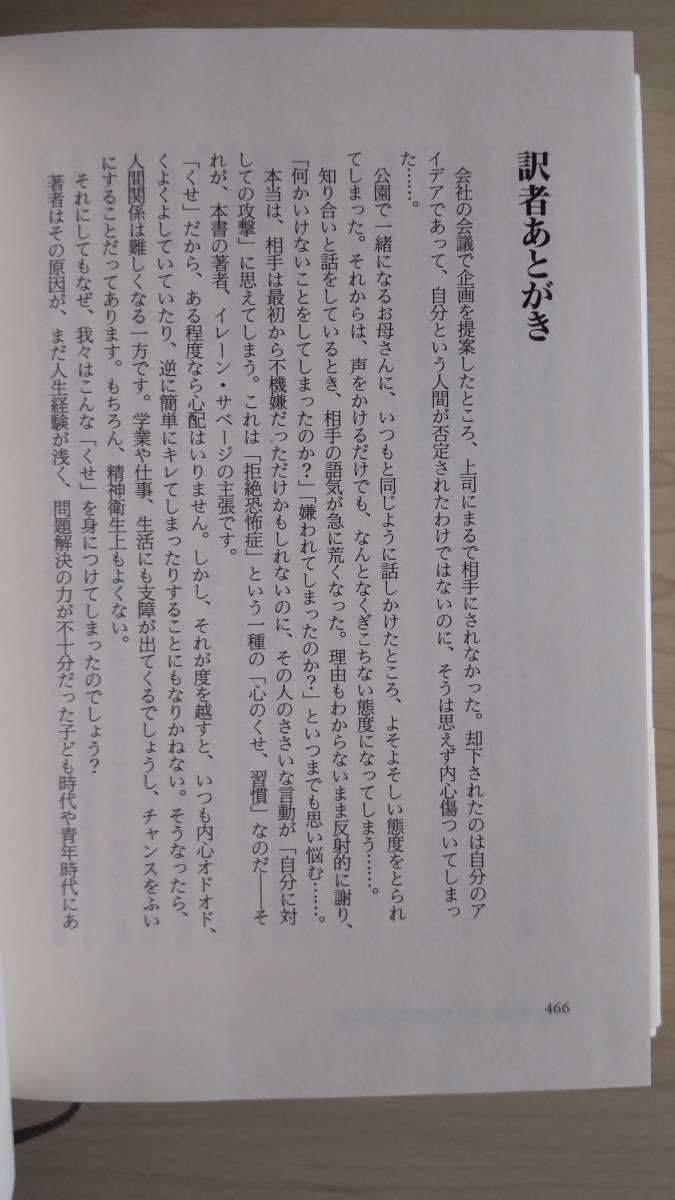 訳者あとがき
会社の会議で企画を提案したところ、上司にまるで相手にされなかった。却下されたのは自分のア
イデアであって、自分という人間が否定されたわけではないのに、そうは思えず内心傷ついてしまっ
た……。
公園で一緒になるお母さんに、いつもと同じように話しかけたところ、よそよそしい態度をとられ
てしまった。それからは、声をかけるだけでも、なんとなくぎこちない態度になってしまう……。
知り合いと話をしているとき、相手の語気が急に荒くなった。理由もわからないまま反射的に謝り、
「何かいけないことをしてしまったのか？」「嫌われてしまったのか？」といつまでも思い悩む……。
本当は、相手は最初から不機嫌だっただけかもしれないのに、その人のささいな言動が「自分に対
しての攻撃」に思えてしまう。これは「拒絶恐怖症」という一種の「心のくせ、習慣」なのだ――そ
れが、本書の著者、イレーン・サベージの主張です。
「くせ」だから、ある程度なら心配はいりません。しかし、それが度を越すと、いつも内心オドオド、
くよくよしていていたり、逆に簡単にキレてしまったりすることにもなりかねない。そうなったら、
人間関係は難しくなる一方です。学業や仕事、生活にも支障が出てくるでしょうし、チャンスをふい
にすることだってあります。もちろん、精神衛生上もよくない。
それにしてもなぜ、我々はこんな「くせ」を身につけてしまったのでしょう？
著者はその原因が、まだ人生経験が浅く、問題解決の力が不十分だった子ども時代や青年時代にあ
466